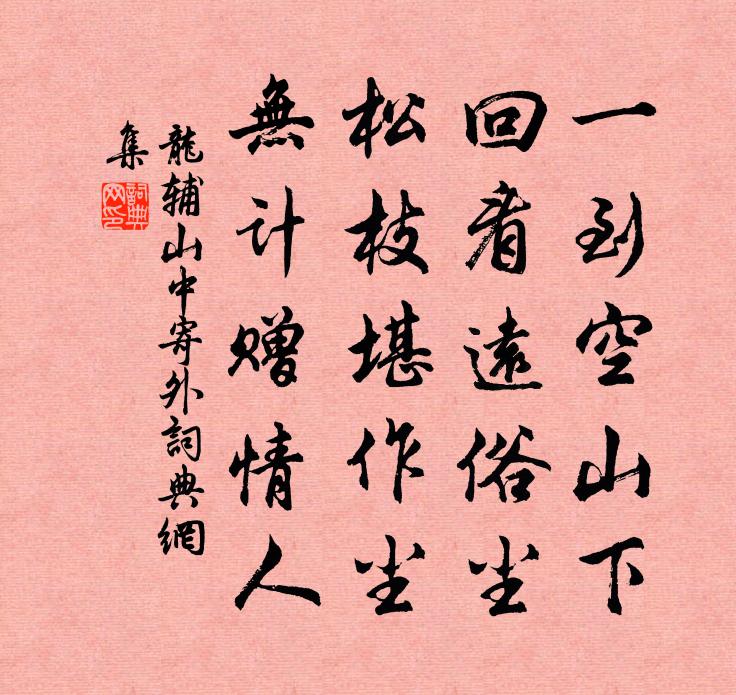 一到空山下
回看遠俗尘
松枝堪作尘
無计赠情人
龍辅山中寄外詞典網
集
詞典
网印